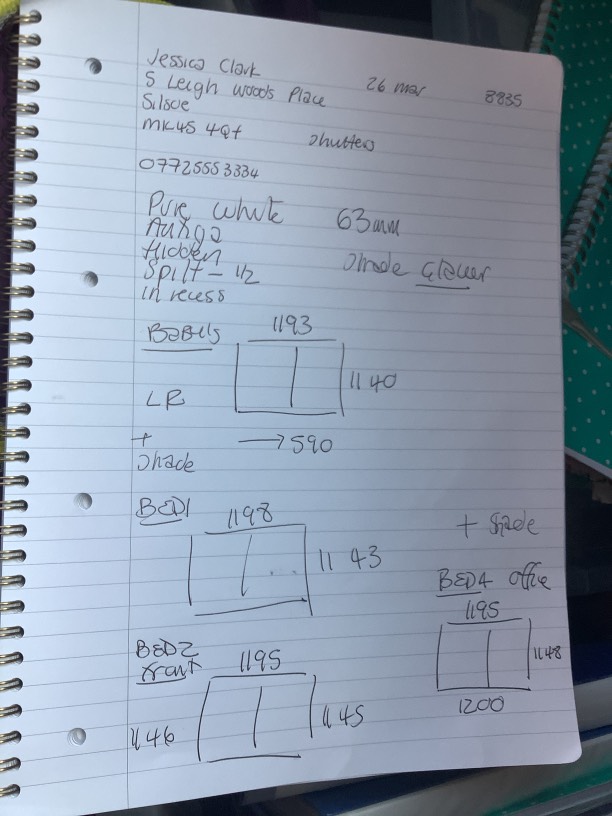 Jessica Clark
5 Leigh Woods Place
Silsoe
MK45 4QT
26 mar
8835
shutters
07725553334
Pure white 63mm
Hidden
Spilt - 1/2
in recess
Shade
1193
1140
LR
→590
+
Shade
BED1
1198
1143
+ Shade
BED4 office
1195
1148
1200
BED2
Front
1195
1146
1145